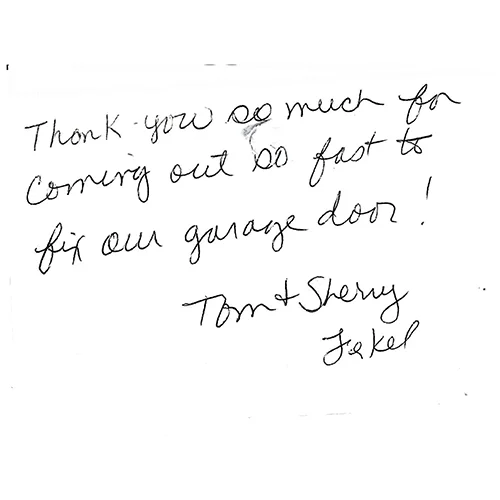 Thank you so much for
coming out so fast to
fix our garage door!
Tom + Sherry
Fekel